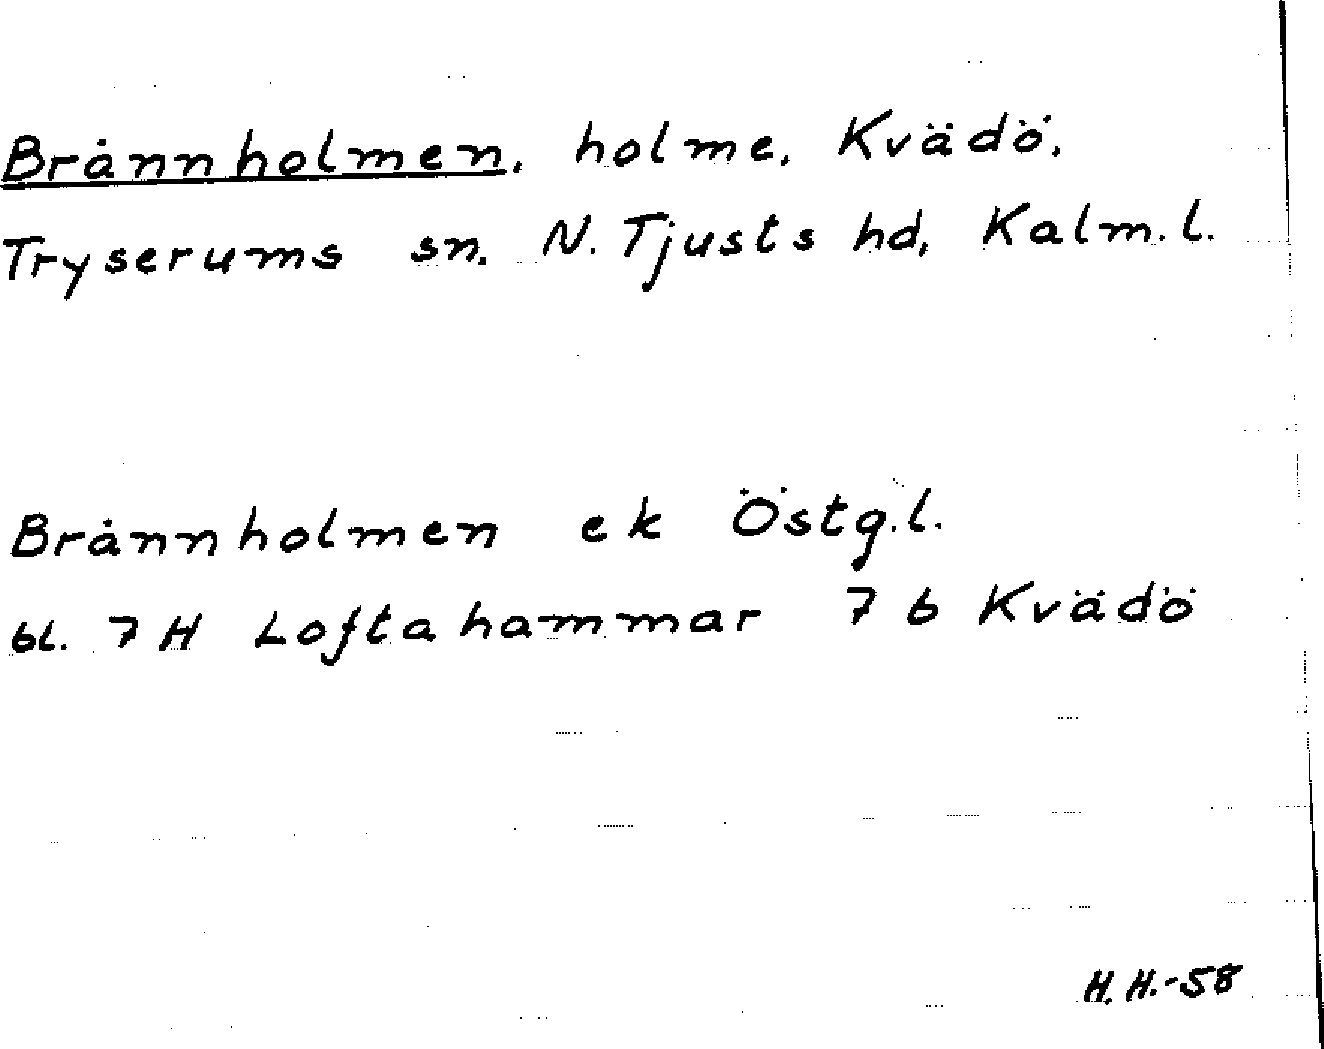 Brånnholmen, holme, Kvädö,
Tryserums sn, N. Tjusts hd, Kalm.l.
Brånnholmen ek Östg.l.
bl. 7H Loftahammar 7 b Kvädö
H.H.-58